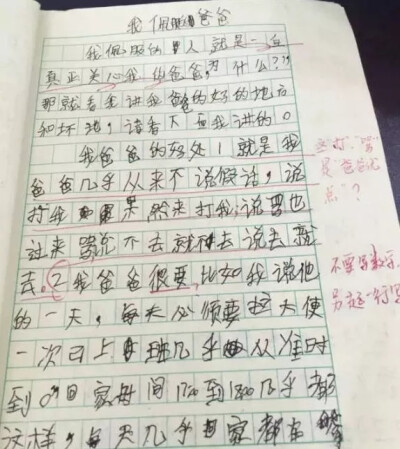 我佩服爸爸
我佩服的人就是一直
真正关心我的爸爸,为什么?”
那就看我讲我爸爸的好的地方
和坏猪,请看下面我讲的。
我爸爸的好处1就是我
爸爸几乎从来不说假话,说
打我果然来打我,说骂也
过来骂说不去就不去说去就
去。2我爸爸很要,比如我说他
的一天,每天必须要这大使
一次已上班几乎从准时
到回家时间1700到1800几乎都
这样,每天几乎回家都在
是“爸爸优
点”?
不要写数字,
另起一行写